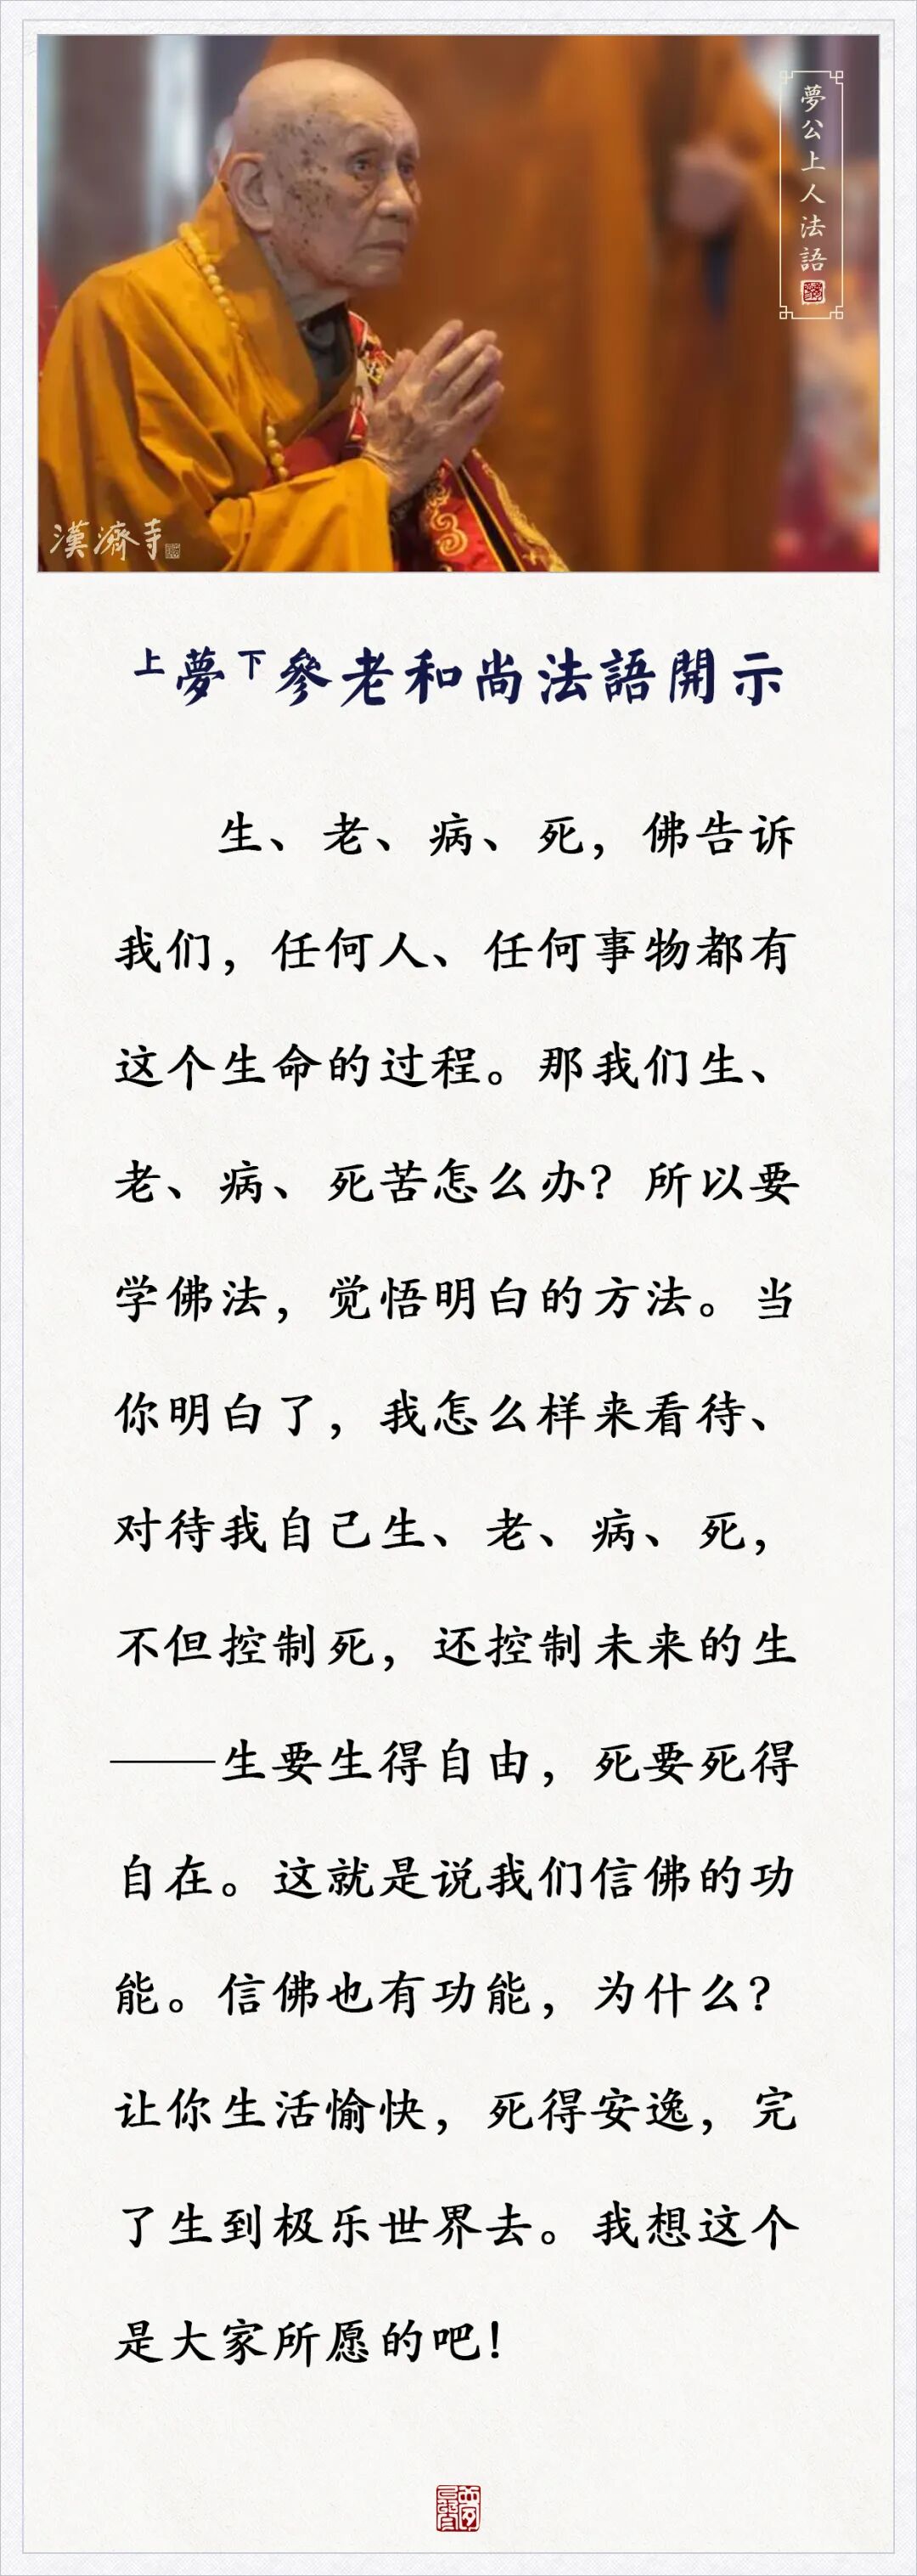 夢公上人法語
漢濟寺
上夢下參老和尚法語開示
生、老、病、死，佛告诉
我们，任何人、任何事物都有
这个生命的过程。那我们生、
老、病、死苦怎么办？所以要
学佛法，觉悟明白的方法。当
你明白了，我怎么样来看待、
对待我自己生、老、病、死，
不但控制死，还控制未来的生
——生要生得自由，死要死得
自在。这就是说我们信佛的功
能。信佛也有功能，为什么？
让你生活愉快，死得安逸，完
了生到极乐世界去。我想这个
是大家所愿的吧！